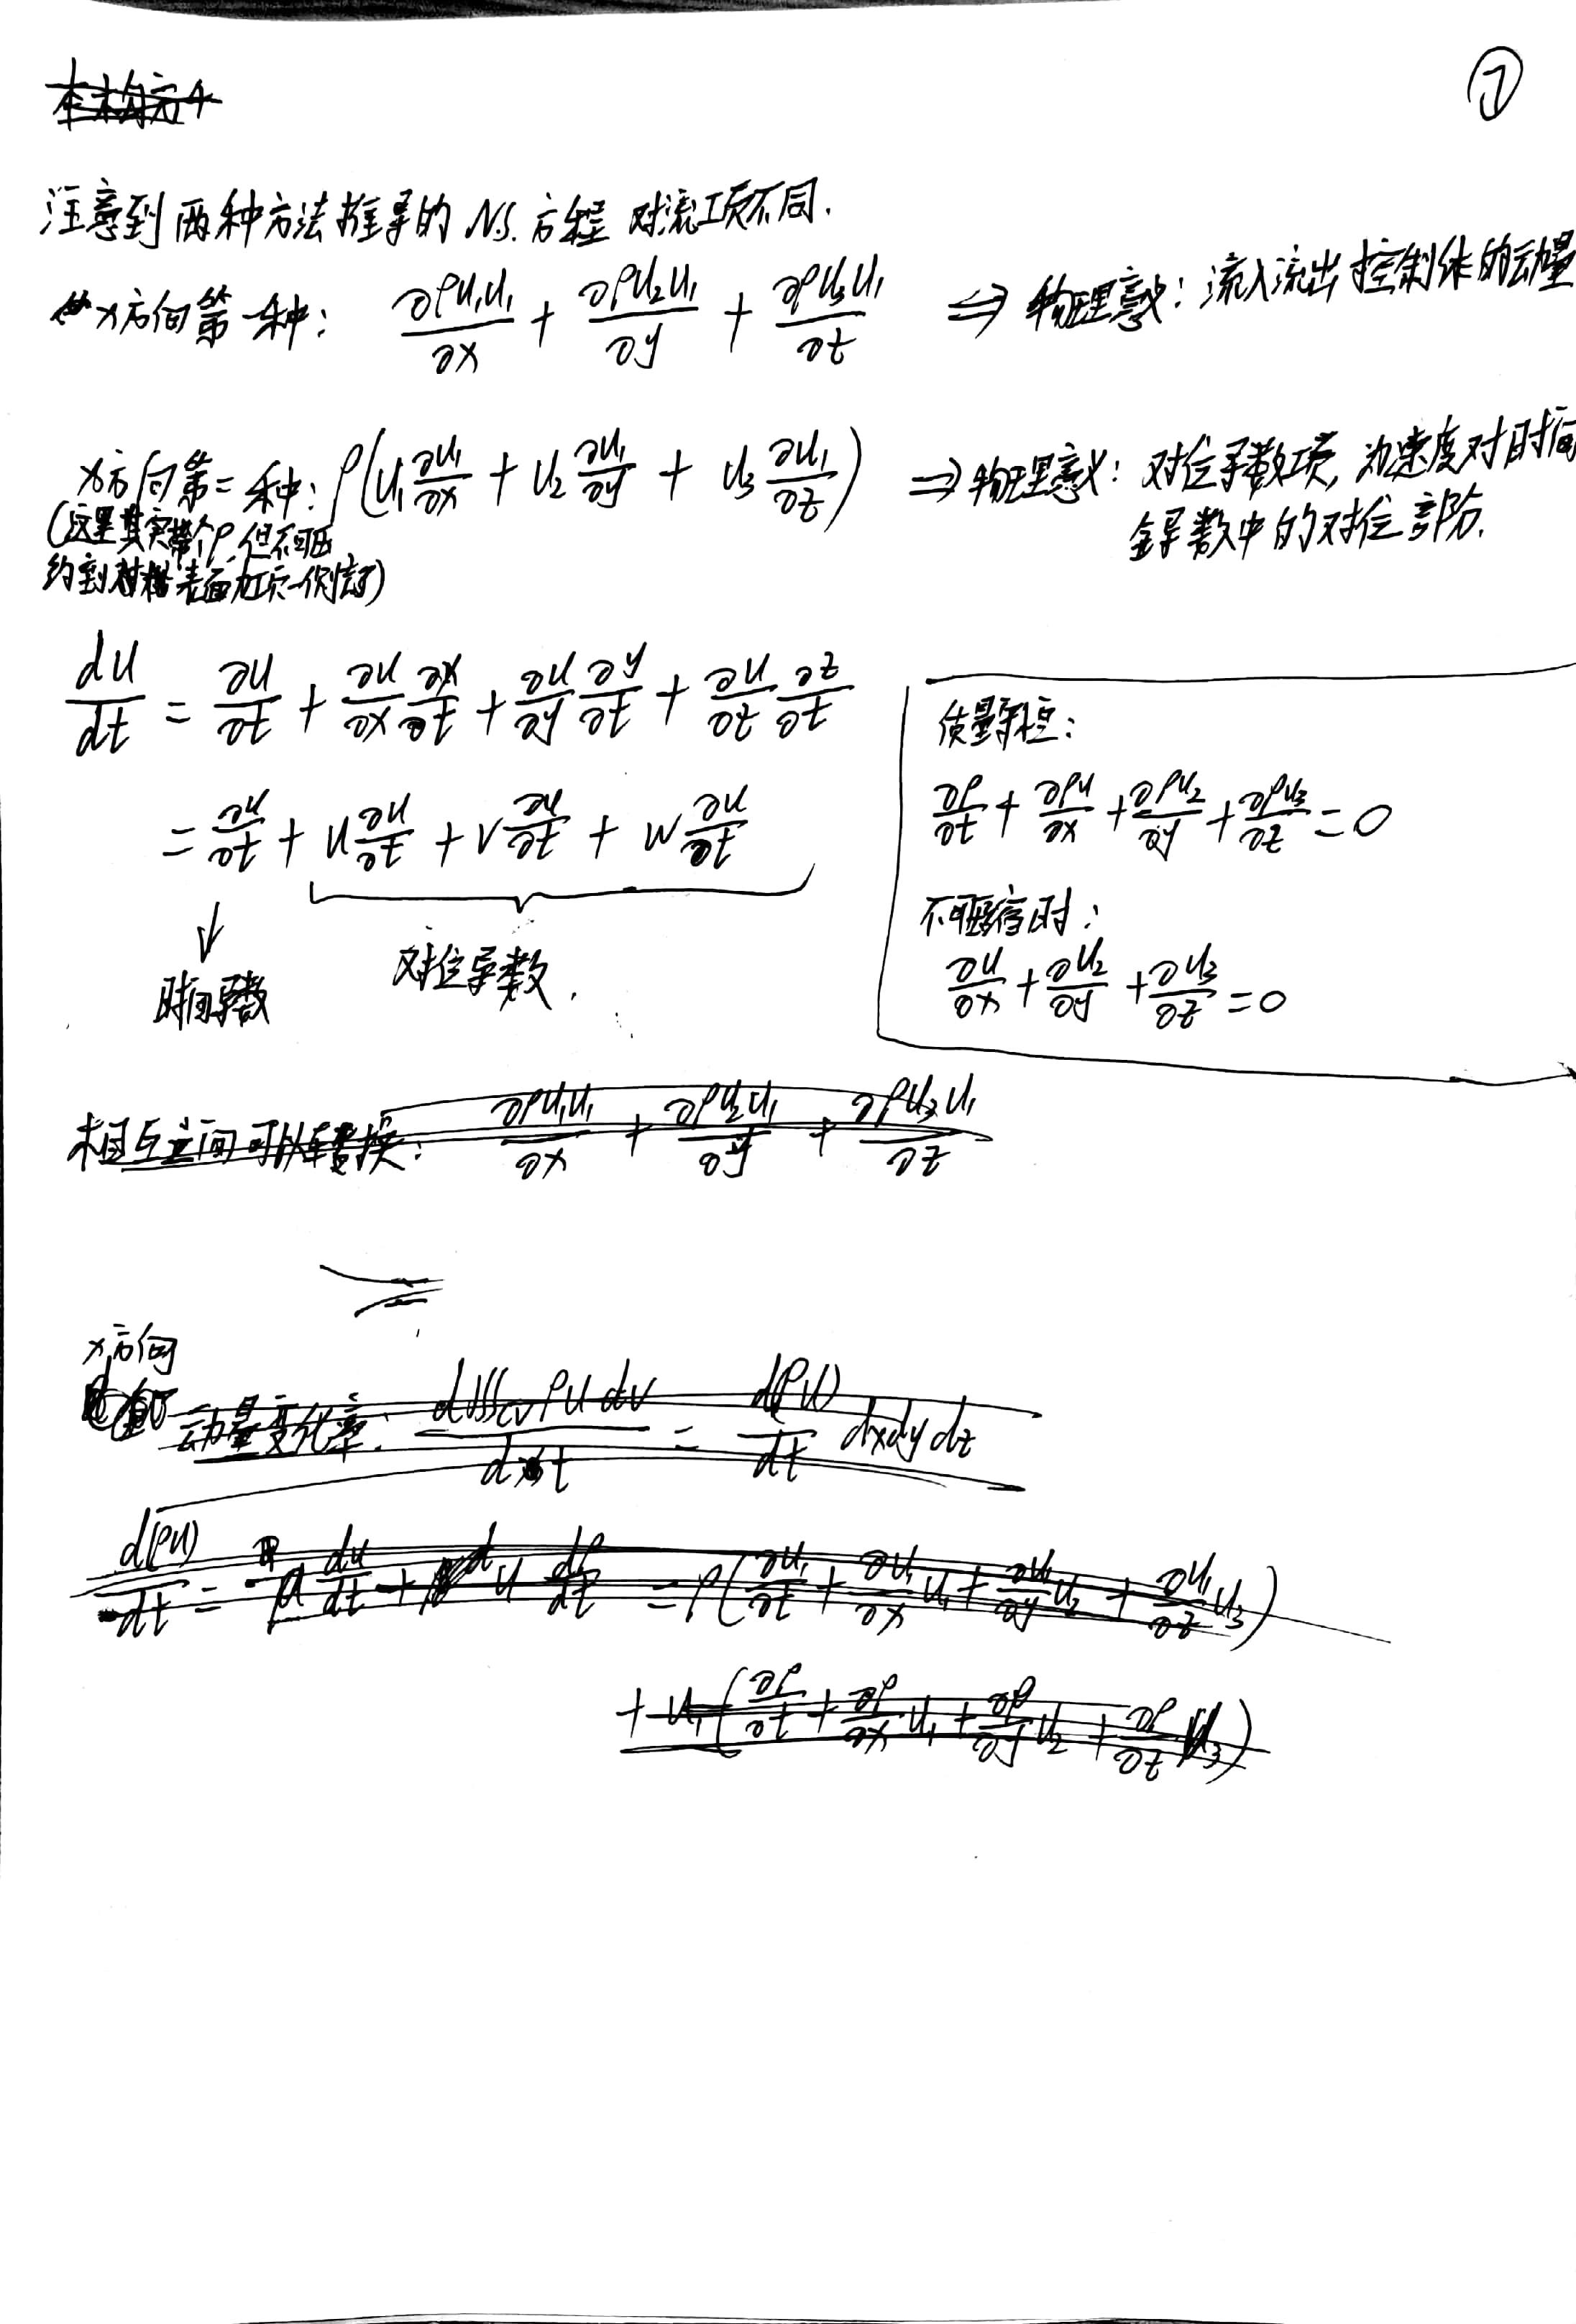 ⑦
注意到两种方法推导的 N.S. 方程 对流项不同.
x方向第一种: ∂ρu₁u₁/∂x + ∂ρu₂u₁/∂y + ∂ρu₃u₁/∂z ⇒ 物理意义: 流入流出控制体的动量
x方向第二种: ρ(u₁ ∂u₁/∂x + u₂ ∂u₁/∂y + u₃ ∂u₁/∂z) ⇒ 物理意义: 对位导数项, 为速度对时间
全导数中的对位部分.
(这里其实带个ρ, 但不可压
约到 表面力项一侧了)
du/dt = ∂u/∂t + ∂u/∂x ∂x/∂t + ∂u/∂y ∂y/∂t + ∂u/∂z ∂z/∂t
= ∂u/∂t + u ∂u/∂t + v ∂u/∂t + w ∂u/∂t
↓
时间导数 对位导数.
质量守恒:
∂ρ/∂t + ∂ρu/∂x + ∂ρu₂/∂y + ∂ρu₃/∂z = 0
不可压缩时:
∂u/∂x + ∂u₂/∂y + ∂u₃/∂z = 0
相互之间可以转换: ∂ρu₁u₁/∂x + ∂ρu₂u₁/∂y + ∂ρu₃u₁/∂z
x方向
动量变化率: d∭cv ρu dv/dt = d(ρu)/dt dxdydz
d(ρu)/dt = ρ du/dt + u dρ/dt = ρ(∂u₁/∂t + ∂u₁/∂x u₁ + ∂u₁/∂y u₂ + ∂u₁/∂z u₃)
+ u₁(∂ρ/∂t + ∂ρ/∂x u₁ + ∂ρ/∂y u₂ + ∂ρ/∂z u₃)